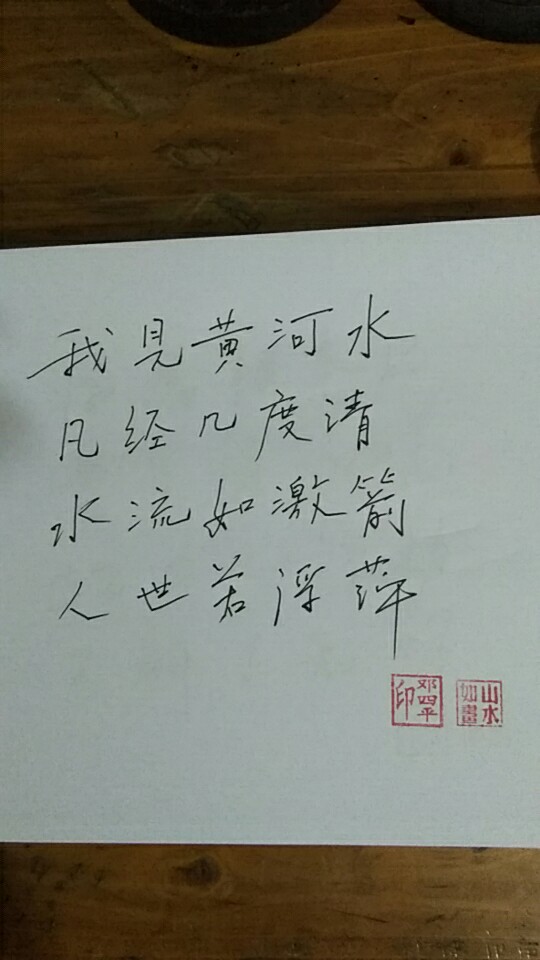 我見黄河水
凡经几度清
水流如激箭
人世若浮萍
邓四平印
山水如畫